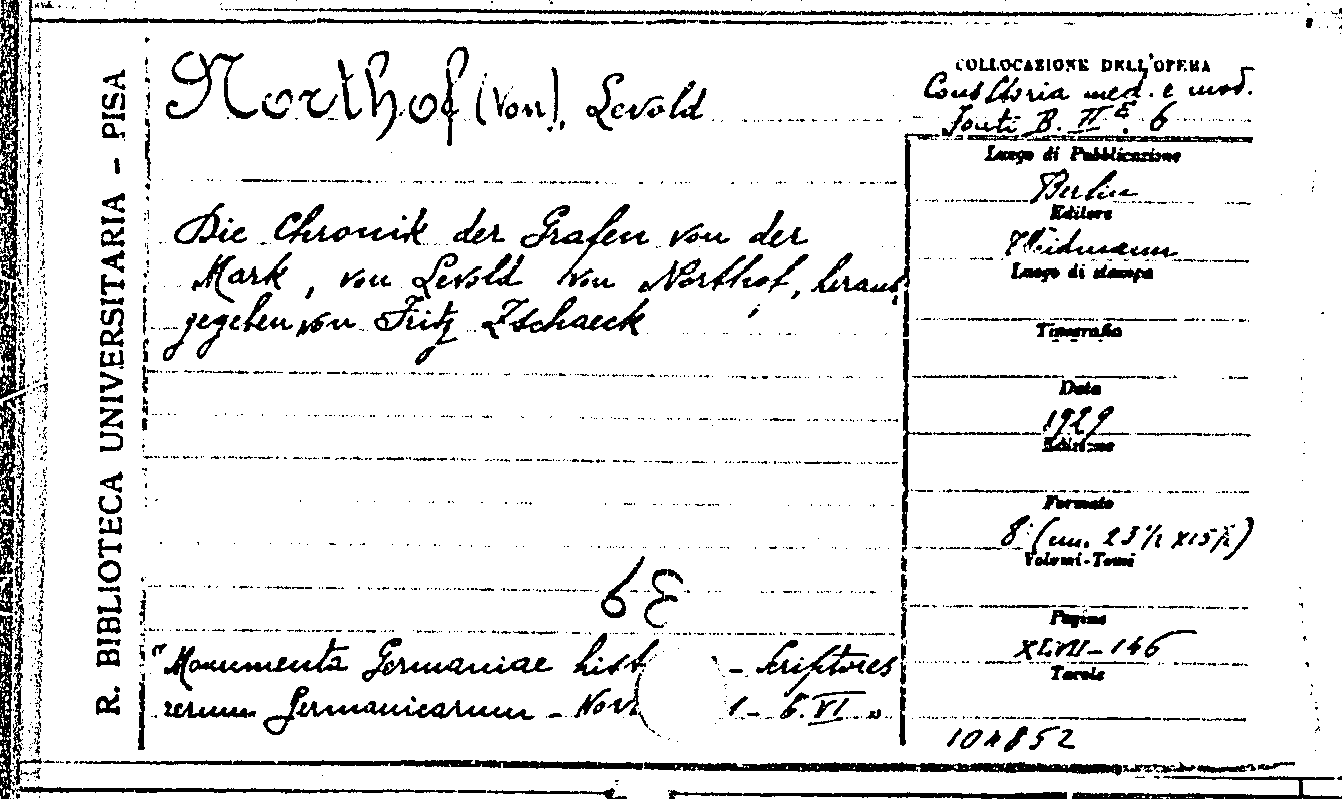 R. BIBLIOTECA UNIVERSITARIA - PISA
Northof (von), Levold
Die Chronik der Grafen von der
Mark, von Levold von Northof, heraus
gegeben von Fritz Zschaeck
6E
"Monumenta Germaniae hist - Scriptores
rerum Germanicarum - Nov
- T. VI "
COLLOCAZIONE DELL'OPERA
med. e mod.
Fonti B. II E. 6
Luogo di Pubblicazione
Berlin
Editore
Weidmann
Luogo di stampa
Tipografia
Data
1929
Edizione
Formato
8° (cm. 23 1/2 x 15 1/2)
Volumi-Tomi
Pagine
XLVII-146
Tavole
104852